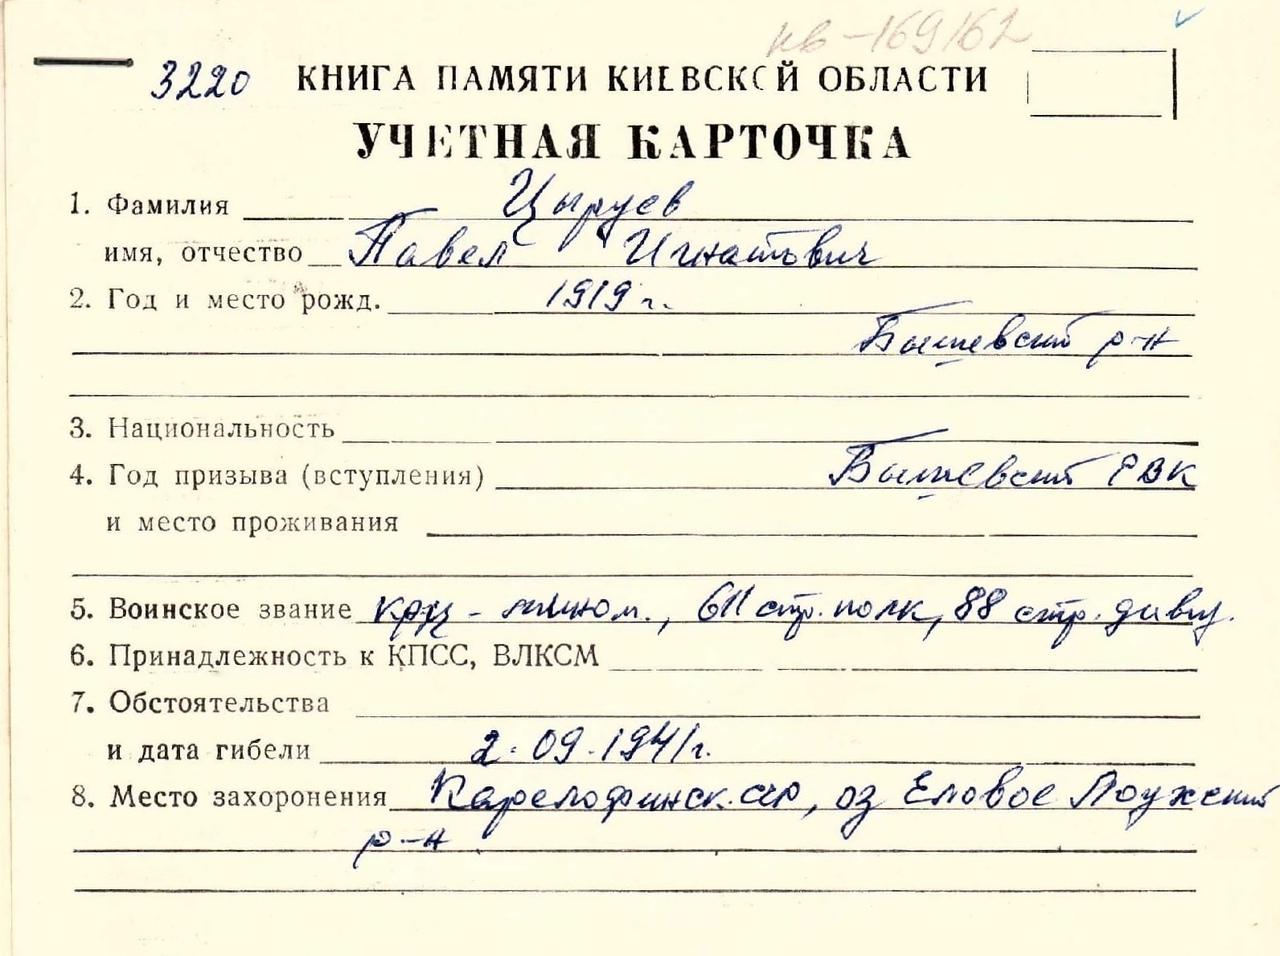 кв-169162
3220 КНИГА ПАМЯТИ КИЕВСКОЙ ОБЛАСТИ
УЧЕТНАЯ КАРТОЧКА
1. Фамилия Цыруев
имя, отчество Павел Игнатович
2. Год и место рожд. 1919 г.
Бышевский р-н
3. Национальность
4. Год призыва (вступления) Бышевский РВК
и место проживания
5. Воинское звание кр-ц - мином., 611 стр. полк, 88 стр. дивиз.
6. Принадлежность к КПСС, ВЛКСМ
7. Обстоятельства
и дата гибели 2.09.1941г.
8. Место захоронения Карелофинск. сср, оз Еловое Лоухский
р-н